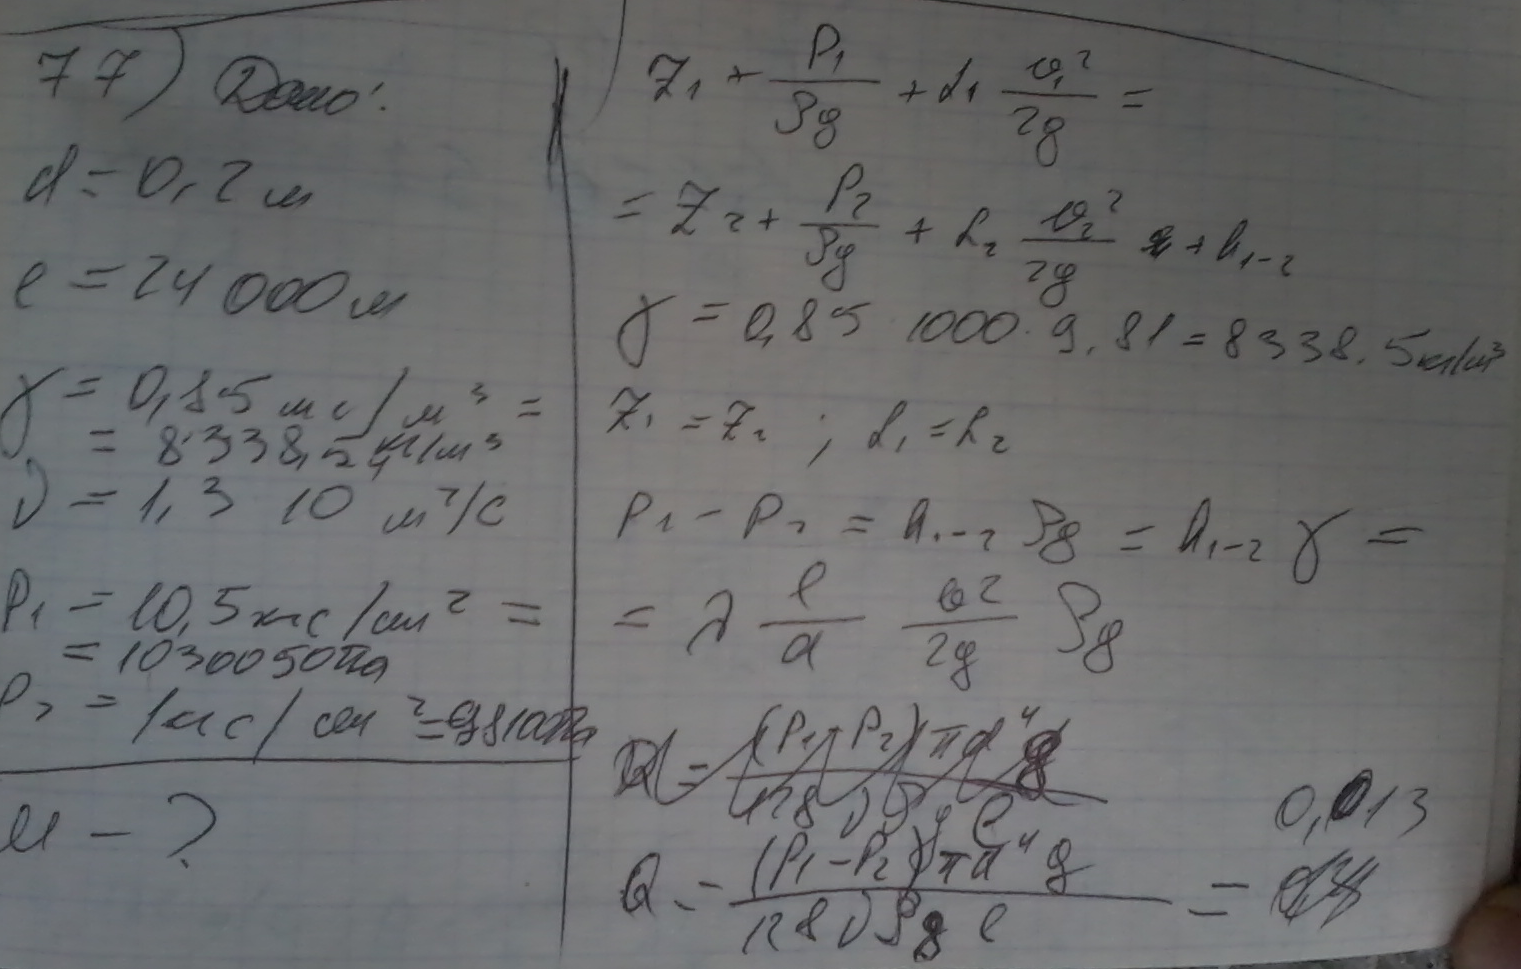 77) Дано:
d = 0,2 м
l = 24 000 м
γ = 0,85 мс/м³ =
= 8338,5 кг/м³
ν = 1,3 10 м²/с
P₁ = 10,5 кгс/см² =
= 1030050 Па
P₂ = 1 кгс/см² = 98100 Па
М - ?
Z₁ + P₁/ρg + α₁ υ₁²/2g =
= Z₂ + P₂/ρg + α₂ υ₂²/2g + h₁₋₂
γ = 0,85 · 1000 · 9,81 = 8338.5 кг/м³
Z₁ = Z₂ ; α₁ = α₂
P₁ - P₂ = h₁₋₂ ρg = h₁₋₂ γ =
= λ l/d υ²/2g ρg
Q = (P₁ - P₂) π d⁴ g / 128 ν ρg l = 0,013